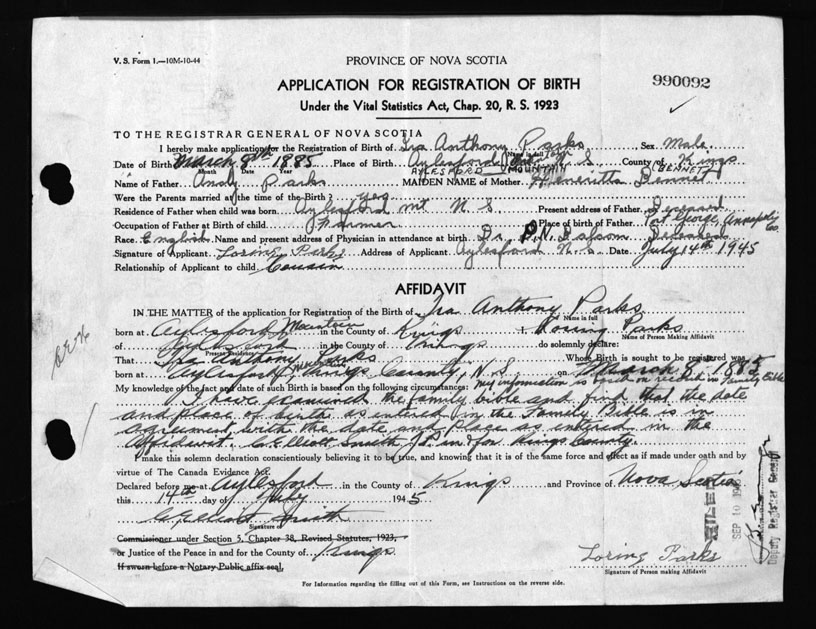 V. S. Form 1.—10M-10-44
PROVINCE OF NOVA SCOTIA
990092
APPLICATION FOR REGISTRATION OF BIRTH
Under the Vital Statistics Act, Chap. 20, R. S. 1923
TO THE REGISTRAR GENERAL OF NOVA SCOTIA
I hereby make application for the Registration of Birth of Ira Anthony Parks Sex Male
Name in full
Date of Birth March 8th 1885 Place of Birth Aylesford N. S County of Kings
Month Date Year AYLESFORD MOUNTAIN BENNETT
Name of Father Andy Parks MAIDEN NAME of Mother Heneritta Bennet
Were the Parents married at the time of the Birth? yes
Residence of Father when child was born Aylesford Mt N S Present address of Father Deceased
Occupation of Father at Birth of child Farmer Place of birth of Father Port George, Annapolis Co.
Race English Name and present address of Physician in attendance at birth Dr. P. N. Balsom Deceased
Signature of Applicant Loring Parks Address of Applicant Aylesford N. S Date July 14th 1945
Relationship of Applicant to child Cousin
AFFIDAVIT
IN THE MATTER of the application for Registration of the Birth of Ira Anthony Parks
Name in full
born at Aylesford Mountain in the County of Kings I, Loring Parks
Name of Person Making Affidavit
of Aylesford in the County of Kings do solemnly declare:
Present Residence
That Ira Anthony Parks Whose Birth is sought to be registered was
born at Aylesford Mountain Kings County, N. S. on March 8, 1885
My knowledge of the fact and date of such Birth is based on the following circumstances: my information is based on record in Family Bible
I have examined the family bible and find that the date
and place of birth as entered in the Family Bible is in
agreement with the date and place as entered in the
Affidavit. C. Elliott Smith J.P. in & for Kings County.
make this solemn declaration conscientiously believing it to be true, and knowing that it is of the same force and effect as if made under oath and by
virtue of The Canada Evidence Act.
Declared before me at Aylesford in the County of Kings and Province of Nova Scotia
this 14th day of July 1945
C. Elliott Smith
Signature of
Commissioner under Section 5, Chapter 38, Revised Statutes, 1923,
or Justice of the Peace in and for the County of Kings
If sworn before a Notary Public affix seal,
Loring Parks
Signature of Person making Affidavit
SEP 10 1945
Deputy Registrar General
For Information regarding the filling out of this Form, see Instructions on the reverse side.